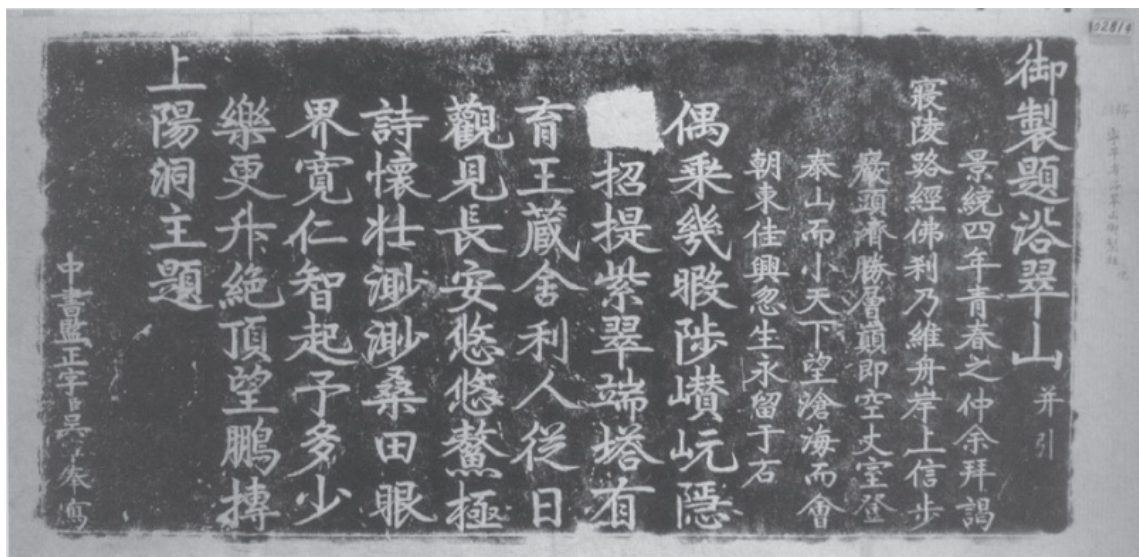 御製題浴翠山 并引
景統四年青春之仲余拜謁
寢陵路經佛刹乃維舟岸上信步
巖頭濟勝層巔即空丈室登
泰山而小天下望滄海而會
朝東佳興忽生永留于石
偶乘幾暇陟巑岏隱
招提紫翠端塔有
育王藏舍利人從日
觀見長安悠悠鰲極
詩懷壯渺渺桑田眼
界寬仁智起予多少
樂更升絕頂望鵬摶
上陽洞主題
中書監正字臣吳 奉寫
02814